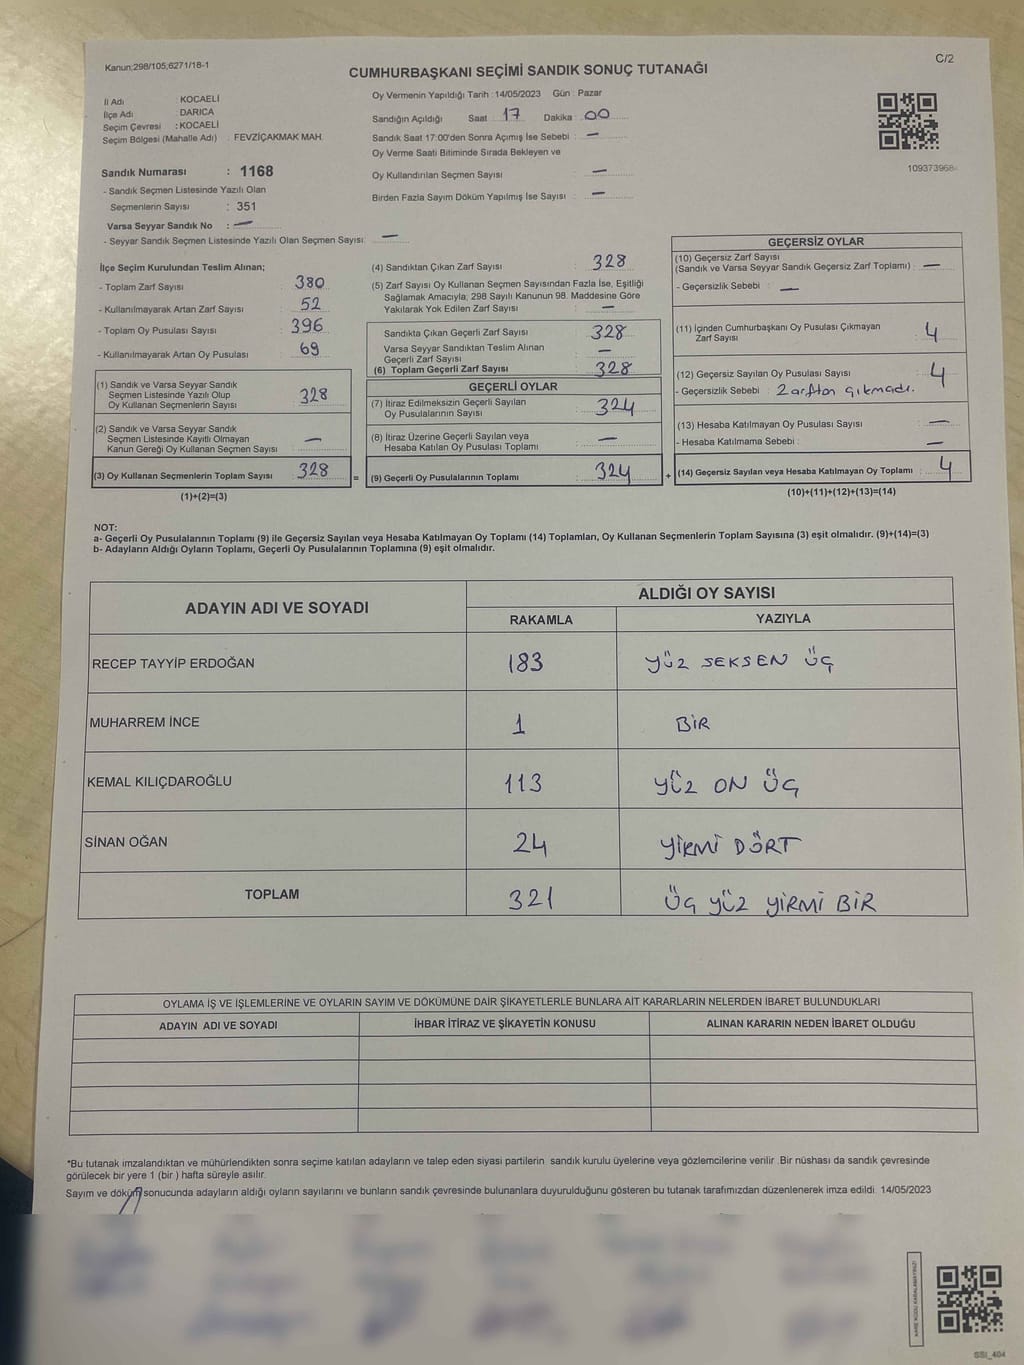 Kanun;298/105;6271/18-1
C/2
CUMHURBAŞKANI SEÇİMİ SANDIK SONUÇ TUTANAĞI
İl Adı : KOCAELİ
İlçe Adı : DARICA
Seçim Çevresi : KOCAELİ
Seçim Bölgesi (Mahalle Adı) : FEVZİÇAKMAK MAH.
Sandık Numarası : 1168
- Sandık Seçmen Listesinde Yazılı Olan
Seçmenlerin Sayısı : 351
Varsa Seyyar Sandık No : —
- Seyyar Sandık Seçmen Listesinde Yazılı Olan Seçmen Sayısı: —
Oy Vermenin Yapıldığı Tarih : 14/05/2023 Gün : Pazar
Sandığın Açıldığı Saat 17 Dakika : 00
Sandık Saat 17:00'den Sonra Açımış İse Sebebi : —
Oy Verme Saati Bitiminde Sırada Bekleyen ve
Oy Kullandırılan Seçmen Sayısı : —
Birden Fazla Sayım Döküm Yapılmış İse Sayısı : —
109373968
İlçe Seçim Kurulundan Teslim Alınan;
- Toplam Zarf Sayısı : 380
- Kullanılmayarak Artan Zarf Sayısı : 52
- Toplam Oy Pusulası Sayısı : 396
- Kullanılmayarak Artan Oy Pusulası : 69
(1) Sandık ve Varsa Seyyar Sandık
Seçmen Listesinde Yazılı Olup
Oy Kullanan Seçmenlerin Sayısı : 328
(2) Sandık ve Varsa Seyyar Sandık
Seçmen Listesinde Kayıtlı Olmayan
Kanun Gereği Oy Kullanan Seçmen Sayısı : —
(3) Oy Kullanan Seçmenlerin Toplam Sayısı : 328
(1)+(2)=(3)
(4) Sandıktan Çıkan Zarf Sayısı : 328
(5) Zarf Sayısı Oy Kullanan Seçmen Sayısından Fazla İse, Eşitliği
Sağlamak Amacıyla, 298 Sayılı Kanunun 98. Maddesine Göre
Yakılarak Yok Edilen Zarf Sayısı : —
Sandıkta Çıkan Geçerli Zarf Sayısı : 328
Varsa Seyyar Sandıktan Teslim Alınan
Geçerli Zarf Sayısı : —
(6) Toplam Geçerli Zarf Sayısı : 328
GEÇERLİ OYLAR
(7) İtiraz Edilmeksizin Geçerli Sayılan
Oy Pusulalarının Sayısı : 324
(8) İtiraz Üzerine Geçerli Sayılan veya
Hesaba Katılan Oy Pusulası Toplamı : —
= (9) Geçerli Oy Pusulalarının Toplamı : 324 +
GEÇERSİZ OYLAR
(10) Geçersiz Zarf Sayısı
(Sandık ve Varsa Seyyar Sandık Geçersiz Zarf Toplamı) : —
- Geçersizlik Sebebi : —
(11) İçinden Cumhurbaşkanı Oy Pusulası Çıkmayan
Zarf Sayısı : 4
(12) Geçersiz Sayılan Oy Pusulası Sayısı : 4
- Geçersizlik Sebebi : Zarftan çıkmadı.
(13) Hesaba Katılmayan Oy Pusulası Sayısı : —
- Hesaba Katılmama Sebebi : —
(14) Geçersiz Sayılan veya Hesaba Katılmayan Oy Toplamı : 4
(10)+(11)+(12)+(13)=(14)
NOT:
a- Geçerli Oy Pusulalarının Toplamı (9) ile Geçersiz Sayılan veya Hesaba Katılmayan Oy Toplamı (14) Toplamları, Oy Kullanan Seçmenlerin Toplam Sayısına (3) eşit olmalıdır. (9)+(14)=(3)
b- Adayların Aldığı Oyların Toplamı, Geçerli Oy Pusulalarının Toplamına (9) eşit olmalıdır.
ADAYIN ADI VE SOYADI ALDIĞI OY SAYISI
RAKAMLA YAZIYLA
RECEP TAYYİP ERDOĞAN 183 YÜZ SEKSEN ÜÇ
MUHARREM İNCE 1 BİR
KEMAL KILIÇDAROĞLU 113 YÜZ ON ÜÇ
SİNAN OĞAN 24 YİRMİ DÖRT
TOPLAM 321 ÜÇ YÜZ YİRMİ BİR
OYLAMA İŞ VE İŞLEMLERİNE VE OYLARIN SAYIM VE DÖKÜMÜNE DAİR ŞİKAYETLERLE BUNLARA AİT KARARLARIN NELERDEN İBARET BULUNDUKLARI
ADAYIN ADI VE SOYADI İHBAR İTİRAZ VE ŞİKAYETİN KONUSU ALINAN KARARIN NEDEN İBARET OLDUĞU
*Bu tutanak imzalandıktan ve mühürlendikten sonra seçime katılan adayların ve talep eden siyasi partilerin sandık kurulu üyelerine veya gözlemcilerine verilir .Bir nüshası da sandık çevresinde
görülecek bir yere 1 (bir ) hafta süreyle asılır.
Sayım ve döküm sonucunda adayların aldığı oyların sayılarını ve bunların sandık çevresinde bulunanlara duyurulduğunu gösteren bu tutanak tarafımızdan düzenlenerek imza edildi. 14/05/2023
KARE KODU KARALAMAYINIZ!
SSI_404